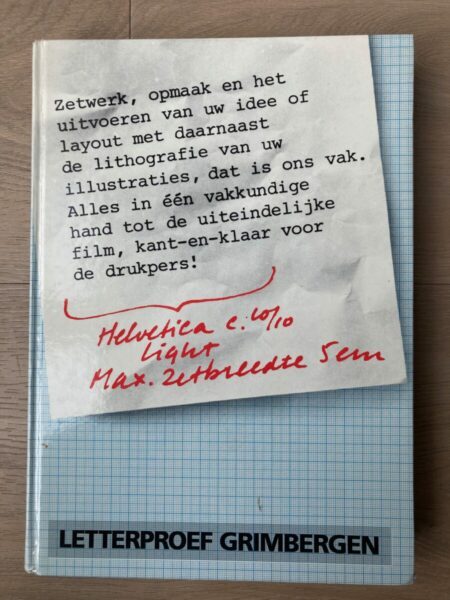 Zetwerk, opmaak en het
uitvoeren van uw idee of
layout met daarnaast
de lithografie van uw
illustraties, dat is ons vak.
Alles in één vakkundige
hand tot de uiteindelijke
film, kant-en-klaar voor
de drukpers!
Helvetica c. 10/10
light
Max. zetbreedte 5 cm
LETTERPROEF GRIMBERGEN